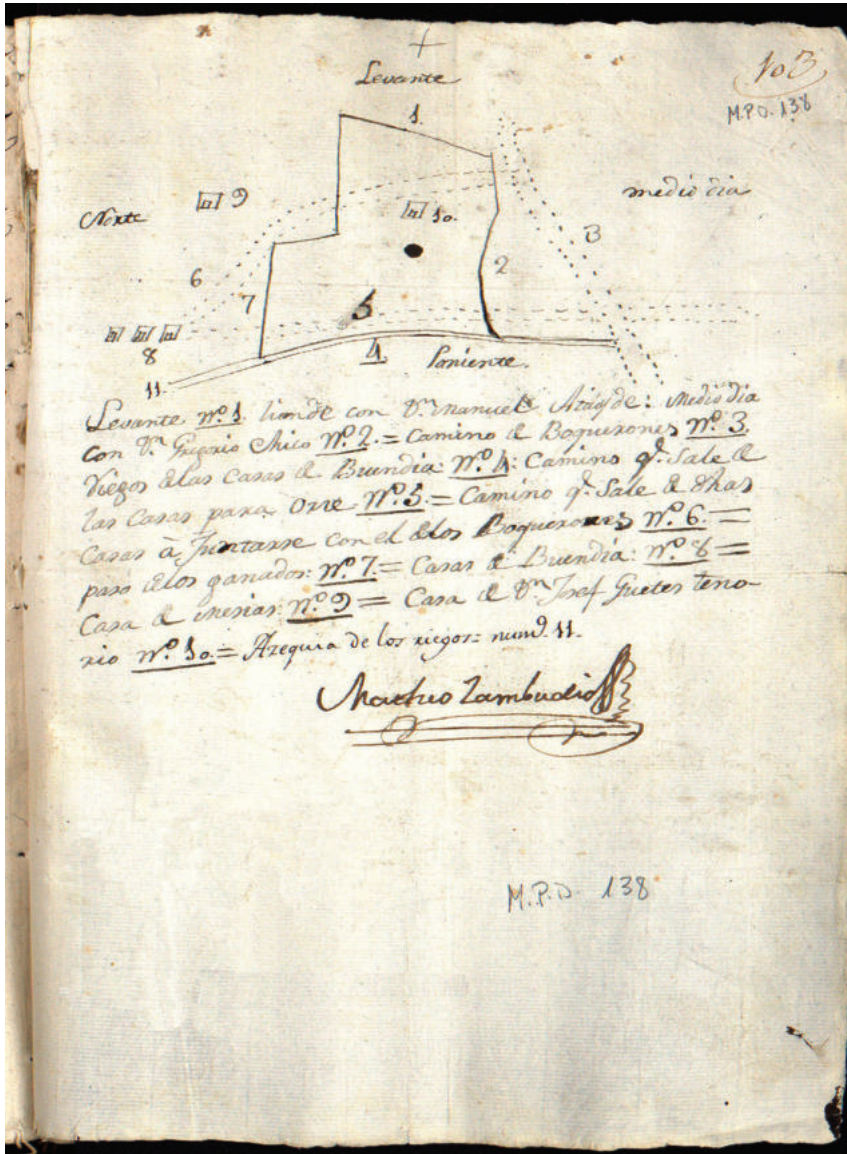 103
M.P.D. 138
Levante
1.
Norte
9
10.
medio dia
3
6
7
2
5
8
4
11.
Poniente.
Levante nº.1. linde con Dn. Manuel Atayde: Medio dia
con Dn. Gregorio Chico nº.2.= Camino de Boquerones nº.3.
Riegos de las Casas de Buendia: nº.4: Camino qe. Sale de
las Casas para Orre nº.5.= Camino qe. Sale de dhas
Casas à Juntarse con el de los Boquerones nº.6.=
paso de los ganados: nº.7.= Casas de Buendia: nº.8=
Casa de mesias nº.9= Casa de Dn. Josef Teno-
rio nº.10.= Azequia de los riegos= numo. 11.
Matheo Zambudio
M.P.D. 138